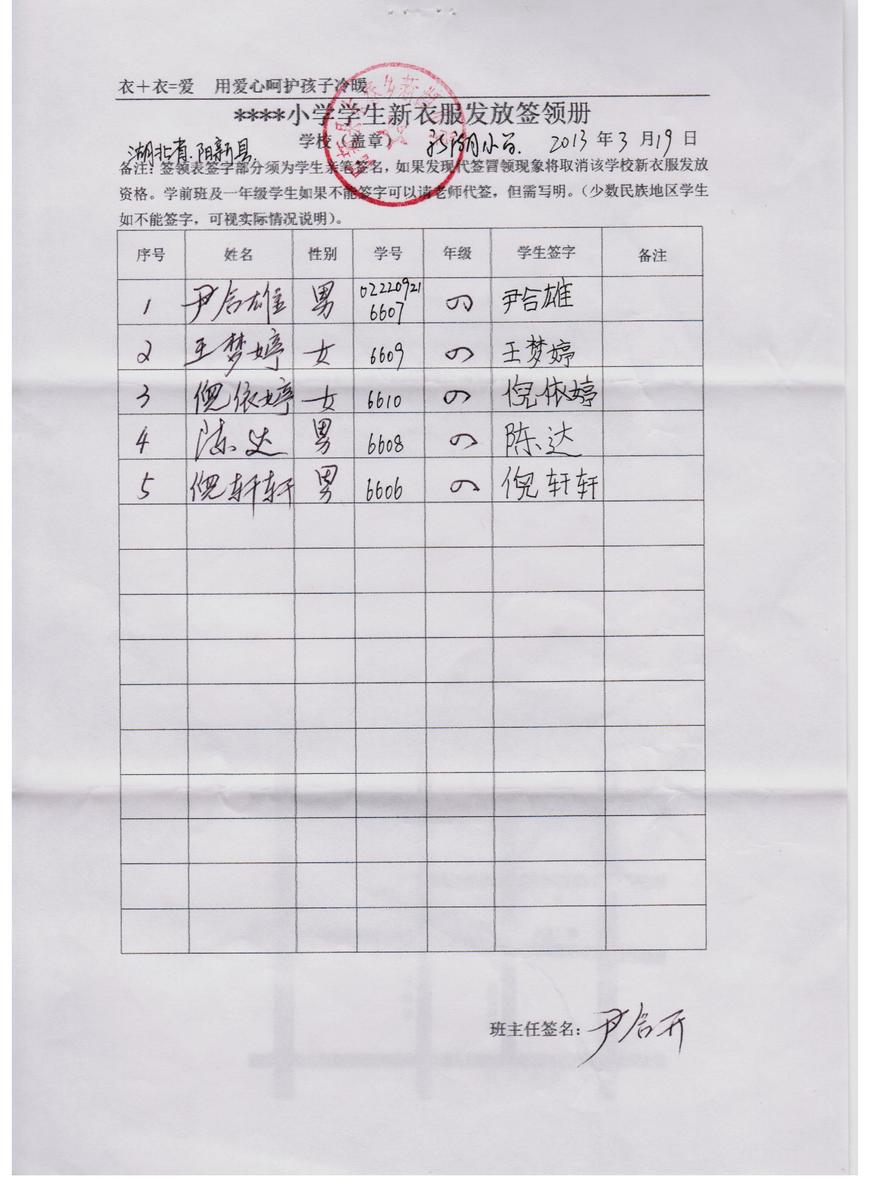 衣+衣=爱 用爱心呵护孩子冷暖
****小学学生新衣服发放签领册
湖北省.阳新县 学校(盖章) 小学. 2013 年 3 月 19 日
备注:签领表签字部分须为学生亲笔签名,如果发现代签冒领现象将取消该学校新衣服发放
资格。学前班及一年级学生如果不能签字可以请老师代签,但需写明。(少数民族地区学生
如不能签字,可视实际情况说明)。
序号 姓名 性别 学号 年级 学生签字 备注
1 尹合雄 男 02220921 6607 の 尹合雄
2 王梦婷 女 6609 の 王梦婷
3 倪依婷 女 6610 の 倪依婷
4 陈达 男 6608 の 陈达
5 倪轩轩 男 6606 の 倪轩轩
班主任签名:尹合开